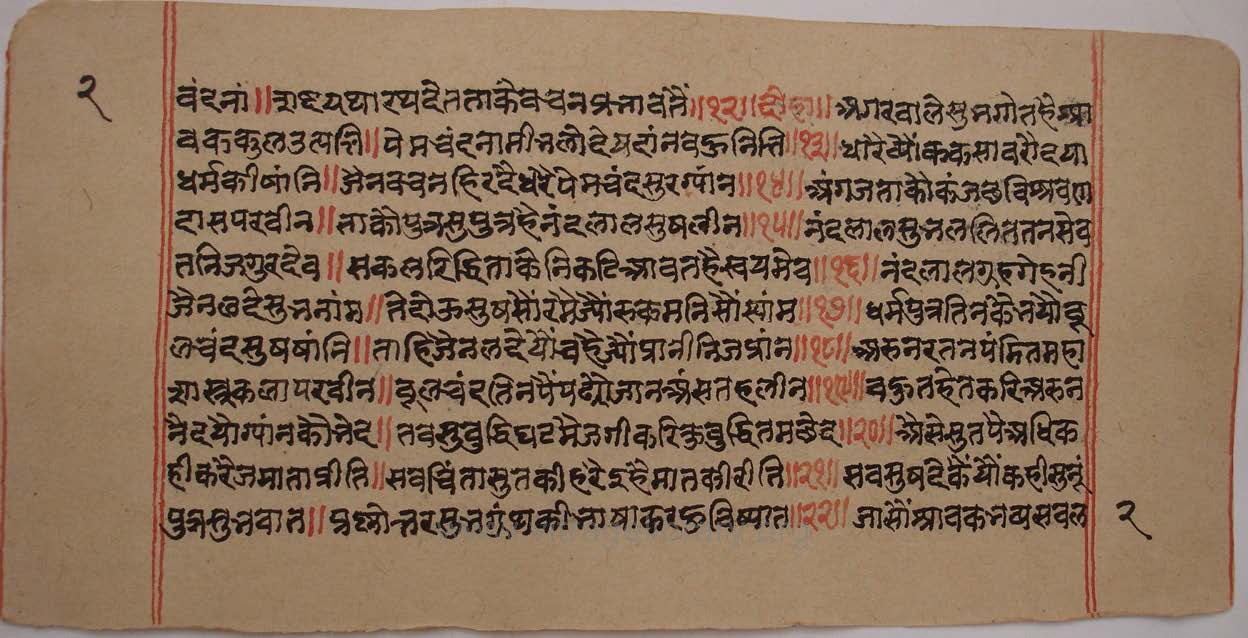 २
वंदनां॥ भाष्टायथारथ देत ताकै वचन प्रभावतैं॥१२॥दोहा॥ अगरवाले सुभगोत है श्रा
वककुल उत्पत्ति॥ पेमचंद नामी भलो देय दांन बहु निति॥१३॥ धारै व्यौंक कसाव रौ दया
धर्म की षांनि॥ जैन वचन हिरदै धरै पेमचंद सुरग्यांन॥१४॥ अंगज ताकौ कंज
दास परवीन॥ ताकौ पुत्र सुपुत्र है नंदलाल सुषलीन॥१५॥ नंदलाल सुभ ललित तन सेव
त निज गुर देव॥ सकल रिद्धि ताकै निकटि आवत है स्वयमेव॥१६॥ नंदलाल गृह गेहनी
जैनछदे सुभ नांम॥ ते दोऊ सुष सौं रमै ज्यौं रुकमनि सौं स्यांम॥१७॥ धर्मपुत्र तिनंकै भयो बू
लचंद सुषषांनि॥ ताहि जैनलदे यौं चहै ज्यौं प्रानी निज प्रांन॥१८॥ अरु नर तन पंडित महा
शास्त्र कला परवीन॥ बूलचंद तिनपैं पढ्यो ग्यान अंस तह लीन॥१९॥ बहुत हेत करि अरु न
नै दयो ग्यांन कौ भेद॥ तब सुबुद्धि घट मै जगी करि कुबुद्धि तम छेद॥२०॥ अैसे सुत पै अधिक
ही करै जु माता प्रीति॥ सब चिंता सुत की हरै इहै मात की रीति॥२१॥ सब सुष दे कैं यौं कही सुनूं
पुत्र सुभ बात॥ प्रश्नोत्तर सुभ ग्रंथ की भाषा करहु विष्यात॥२२॥ जासौं श्रावक भव्य सब ल
२